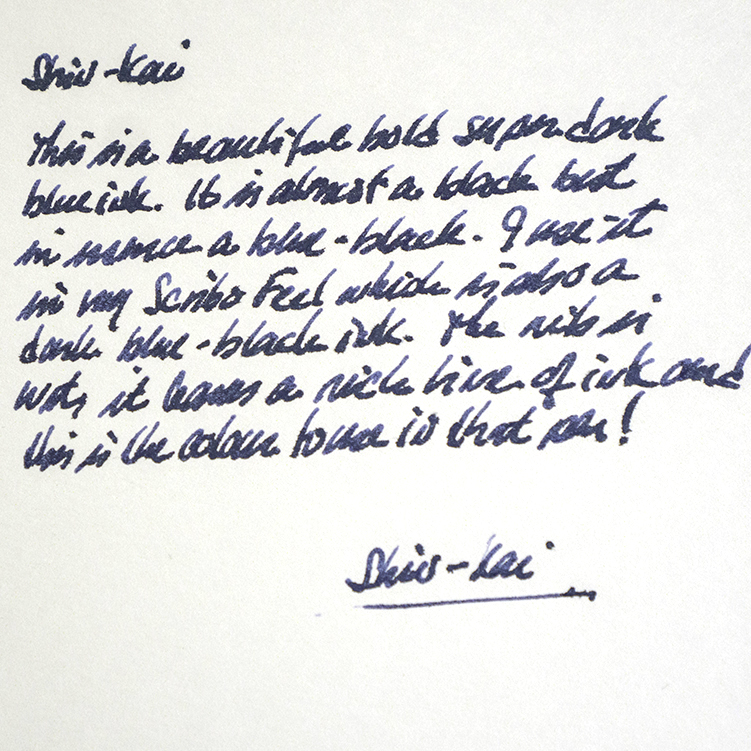 Shin-Kai
This is a beautiful bold super dark
blue ink. It is almost a black but
in essence a blue-black. I use it
in my Scribo Feel which is also a
dark blue-black ink. The nib is
wet, it leaves a rich line of ink and
this is the colour to use in that pen!
Shin-Kai